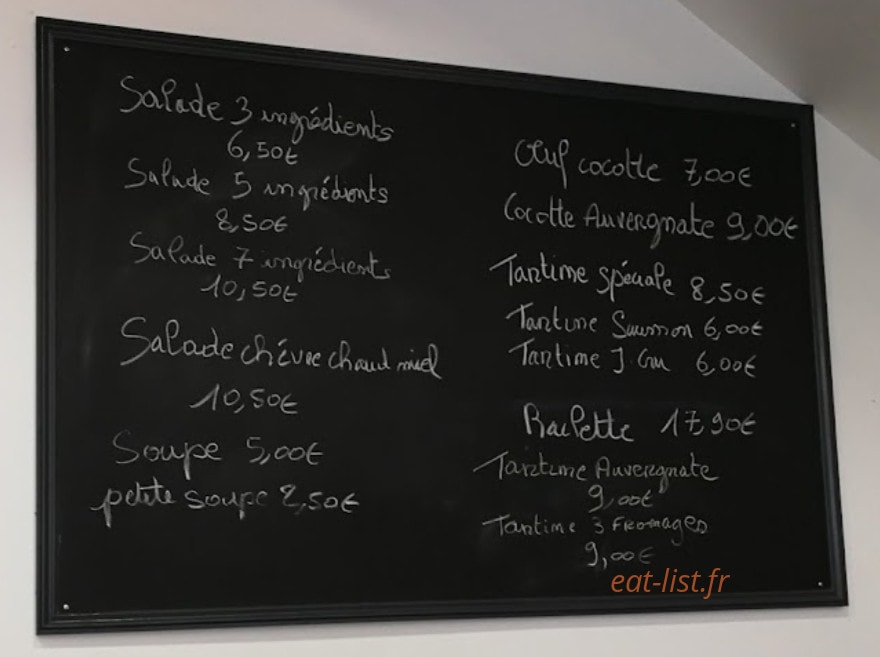 Salade 3 ingrédients
6,50€
Salade 5 ingrédients
8,50€
Salade 7 ingrédients
10,50€
Salade chévre chaud miel
10,50€
Soupe 5,00€
petite soupe 2,50€
Œuf cocotte 7,00€
Cocotte Auvergnate 9,00€
Tartine spéciale 8,50€
Tartine Saumon 6,00€
Tartine J. Cru 6,00€
Raclette 17,90€
Tartine Auvergnate
9,00€
Tartine 3 Fromages
9,00€
eat-list.fr